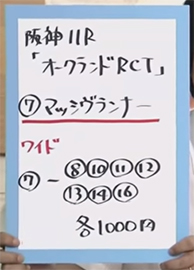 阪神11R
「オークランドRCT」
⑦マッシヴランナー
ワイド
⑦ー⑧⑩⑪⑫
⑬⑭⑯
各1000円